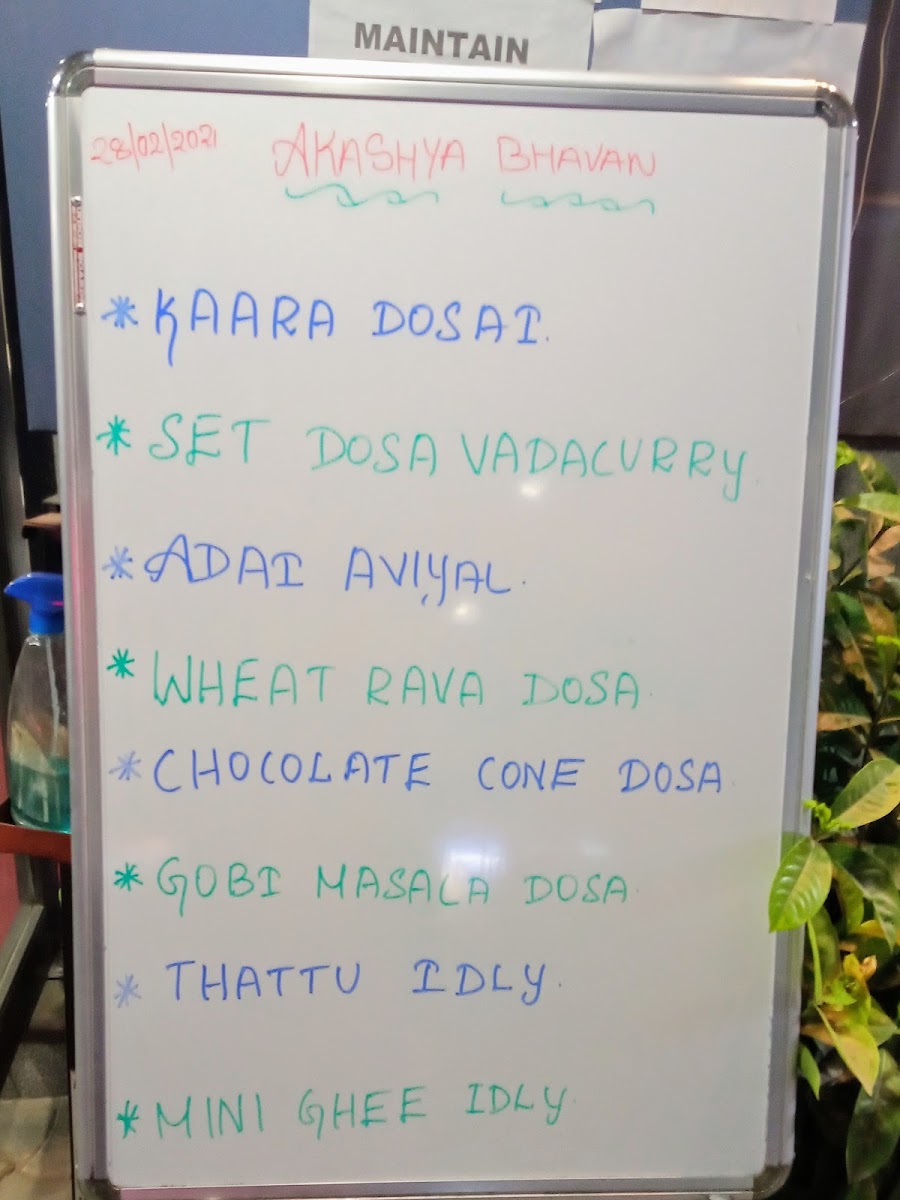 MAINTAIN
28/02/2021 AKASHYA BHAVAN
* KAARA DOSAI.
* SET DOSA VADACURRY
* ADAI AVIYAL.
* WHEAT RAVA DOSA.
* CHOCOLATE CONE DOSA.
* GOBI MASALA DOSA.
* THATTU IDLY.
* MINI GHEE IDLY.